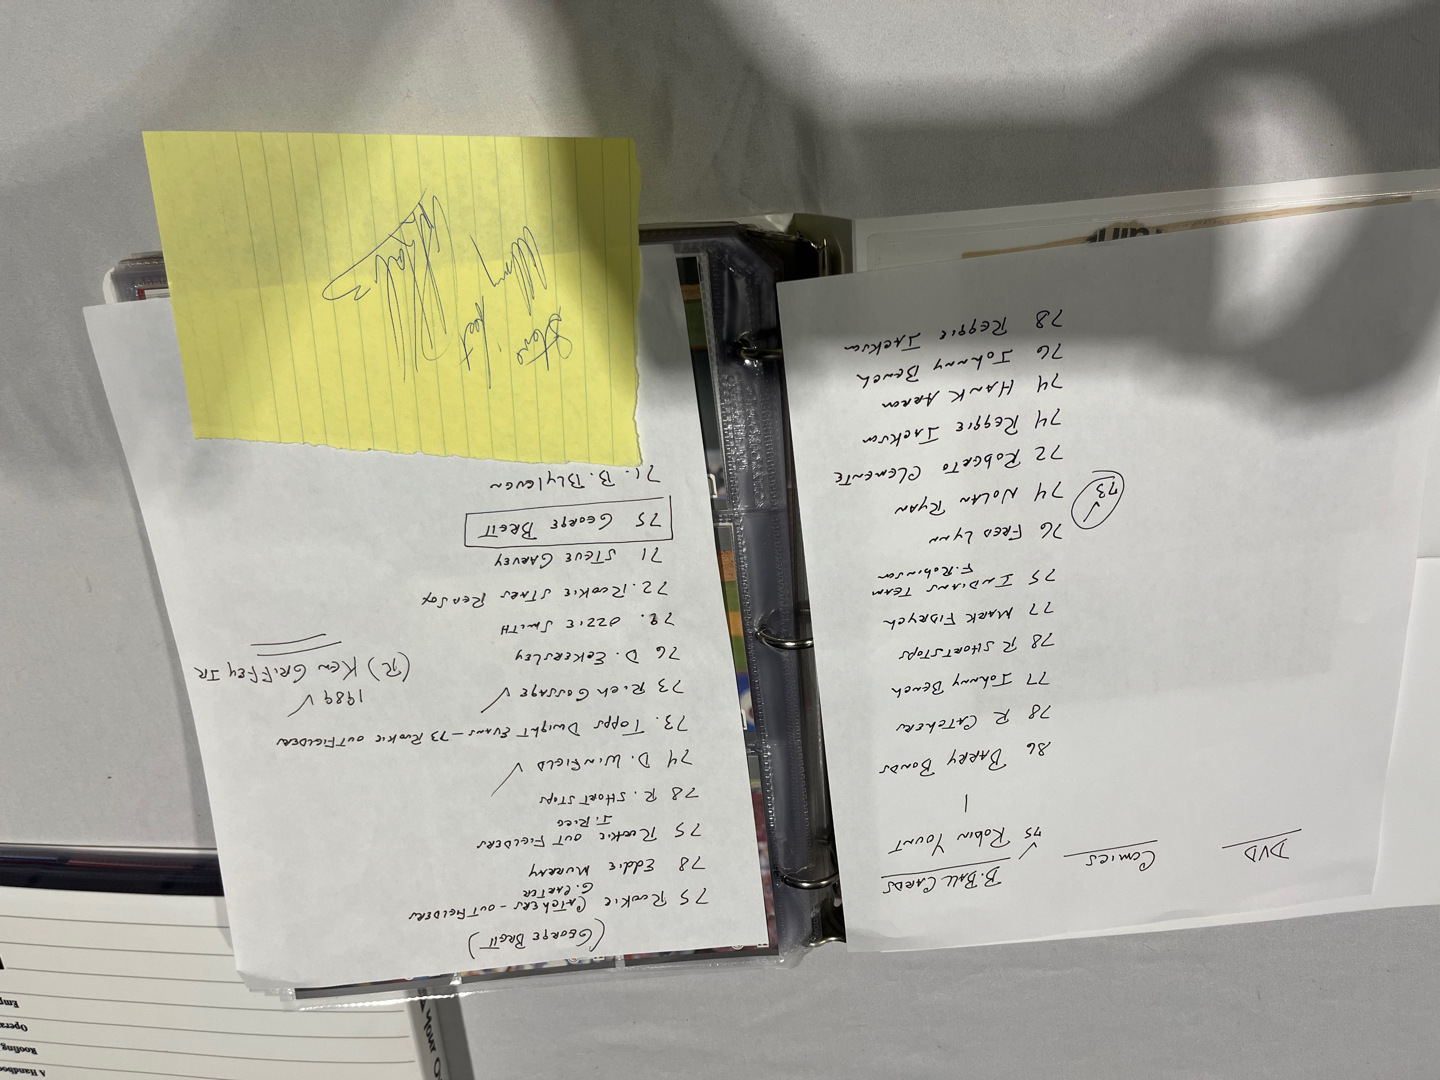 DVD
Comics
B.BALL CARDS
75 ROBIN YOUNT
86 BARRY BONDS
78 R CATCHERS
77 JOHNNY BENCH
78 R SHORTSTOPS
77 MARK FIDRYCH
75 INDIANS TEAM
F. ROBINSON
76 FRED LYNN
74 NOLAN RYAN
73
72 ROBERTO CLEMENTE
74 REGGIE JACKSON
74 HANK ARRON
76 JOHNNY BENCH
78 REGGIE JACKSON
(GEORGE BRETT)
75 ROOKIE CATCHERS - OUTFIELDERS
G. CARTER
78 EDDIE MURRAY
75 ROOKIE OUTFIELDERS
J. RICE
78 R. SHORTSTOPS
74 D. WINFIELD
73. TOPPS DWIGHT EVANS - 73 ROOKIE OUTFIELDERS
73 RICH GOSSAGE
76 D. ECKERSLEY
79. OZZIE SMITH
72. ROOKIE STARS RED SOX
71 STEVE GARVEY
75 GEORGE BRETT
71. B. BLYLEVEN
1989
(R) KEN GRIFFEY JR
A Handboo
Roofing
Opera
Emp